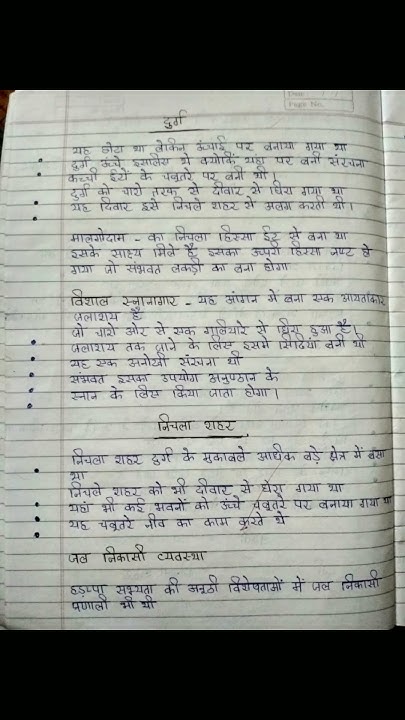 Page No.
दुर्ग
यह छोटा था लेकिन ऊंचाई पर बनाया गया था
दुर्ग ऊंचे इसलिए थे क्योंकि यहां पर बनी संरचना
कच्ची ईटों के चबूतरे पर बनी थी।
दुर्ग को चारो तरफ से दीवार से घिरा गया था
यह दिवार इसे निचले शहर से अलग करती थी।
मालगोदाम - का निचला हिस्सा ईट से बना था
इसके साक्ष्य मिले हैं इसका उपरी हिस्सा नष्ट हो
गया जो संभवत लकड़ी का बना होगा
विशाल स्नानागार - यह आंगन में बना एक आयताकार
जलाशय है
जो चारो ओर से एक गलियारे से घिरा हुआ है।
जलाशय तक जाने के लिए इसमें सिढियां बनी थी
यह एक अनोखी संरचना थी
संभवत इसका उपयोग अनुष्ठान के
स्नान के लिए किया जाता होगा।
निचला शहर
निचला शहर दुर्ग के मुकाबले अधिक बड़े क्षेत्र में बसा
था
निचले शहर को भी दीवार से घेरा गया था
यहां भी कई भवनों को ऊंचे चबूतरे पर बनाया गया था
यह चबूतरे नीव का काम करते थे
जल निकासी व्यवस्था
हड़प्पा सभ्यता की अनूठी विशेषताओं में जल निकासी
प्रणाली भी थी